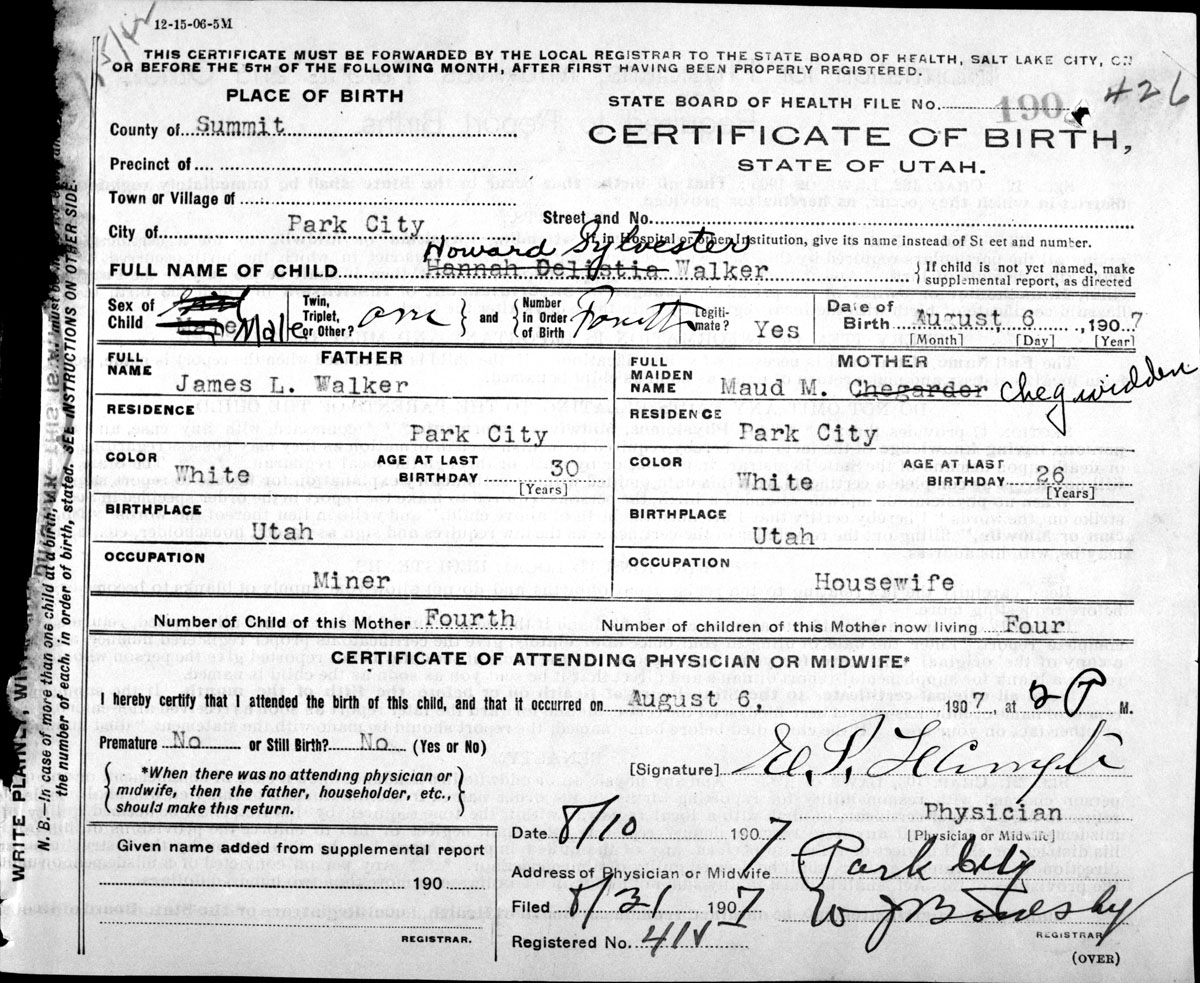 12-15-06-5M
THIS CERTIFICATE MUST BE FORWARDED BY THE LOCAL REGISTRAR TO THE STATE BOARD OF HEALTH, SALT LAKE CITY,
OR BEFORE THE 5TH OF THE FOLLOWING MONTH, AFTER FIRST HAVING BEEN PROPERLY REGISTERED.
PLACE OF BIRTH
STATE BOARD OF HEALTH FILE No. 190 426
County of Summit
CERTIFICATE OF BIRTH,
STATE OF UTAH.
Precinct of
Town or Village of
City of Park City Street and No.
If in Hospital or other Institution, give its name instead of St eet and number.
Howard Sylvester
FULL NAME OF CHILD Hannah Delistia Walker
If child is not yet named, make
supplemental report, as directed
Sex of Child Male Male
Twin, Triplet, or Other? one
and
Number in Order of Birth Fourth
Legiti-mate? Yes
Date of Birth August 6, 1907
[Month] [Day] [Year]
FATHER
FULL NAME James L. Walker
RESIDENCE
Park City
COLOR White AGE AT LAST BIRTHDAY 30
[Years]
BIRTHPLACE
Utah
OCCUPATION
Miner
MOTHER
FULL MAIDEN NAME Maud M. Chegarder Chegwidden
RESIDENCE
Park City
COLOR White AGE AT LAST BIRTHDAY 26
[Years]
BIRTHPLACE
Utah
OCCUPATION
Housewife
Number of Child of this Mother Fourth Number of children of this Mother now living Four
CERTIFICATE OF ATTENDING PHYSICIAN OR MIDWIFE*
I hereby certify that I attended the birth of this child, and that it occurred on August 6, 1907, at 8 P M.
Premature No or Still Birth? No (Yes or No)
[Signature]
*When there was no attending physician or
midwife, then the father, householder, etc.,
should make this return.
Physician
[Physician or Midwife]
Date 8/10 1907
Given name added from supplemental report
190
REGISTRAR.
Address of Physician or Midwife Park City
Filed 8/31 1907
REGISTRAR
Registered No.
(OVER)
WRITE PLAINLY, WITH
N. B.—In case of more than one child at a birth,
the number of each, in order of birth, stated. SEE INSTRUCTIONS ON OTHER SIDE.